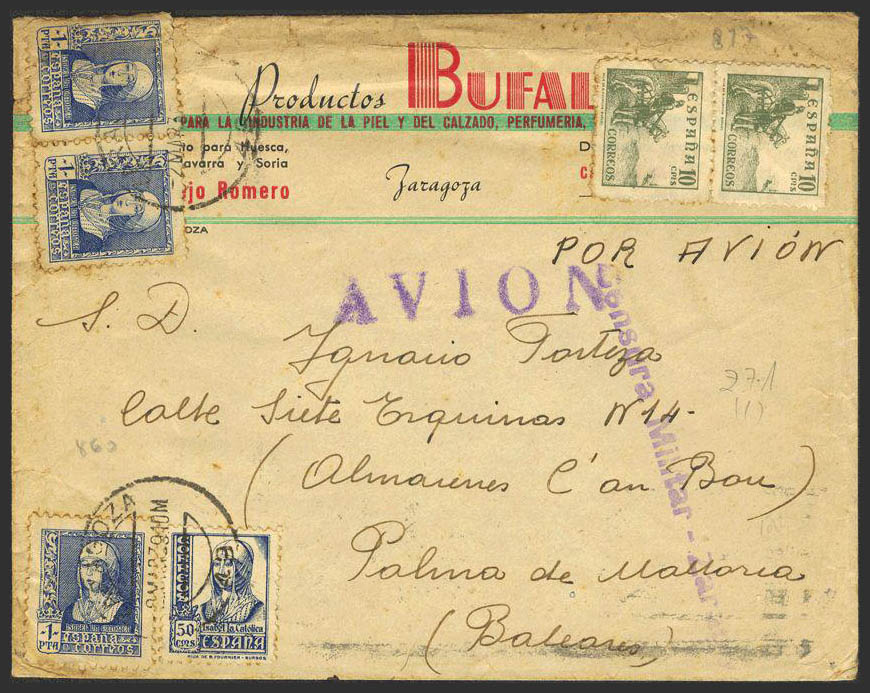 877
Productos BUFAL
PARA LA INDUSTRIA DE LA PIEL Y DEL CALZADO, PERFUMERIA,
para Huesca,
avarra y Soria
jo Romero
Zaragoza
D
OZA
1 PTA
ESPAÑA
CORREOS
1 PTA
ESPAÑA
CORREOS
ESPAÑA
CORREOS
10 CTS
ESPAÑA
CORREOS
10 CTS
POR AVIÓN
AVION
Censura Militar - Zar
S. D.
Ignacio Forteza
Calle Siete Esquinas Nº 14-
(Almacenes C'an Bou)
Palma de Mallorca
(Baleares)
27-1
(1)
860
OZA
1 PTA
ESPAÑA
CORREOS
CORREOS
50 CTS
Isabel la Católica
ESPAÑA
HIJA DE B. FOURNIER - BURGOS